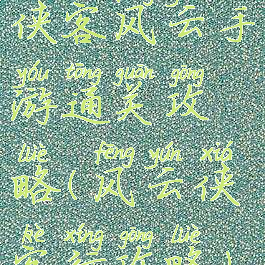 侠客风云手
yóu tōng guān gōng
游通关攻
lüè fēng yún xiá
略(风云侠
kè xíng gōng lüè
客行攻略)